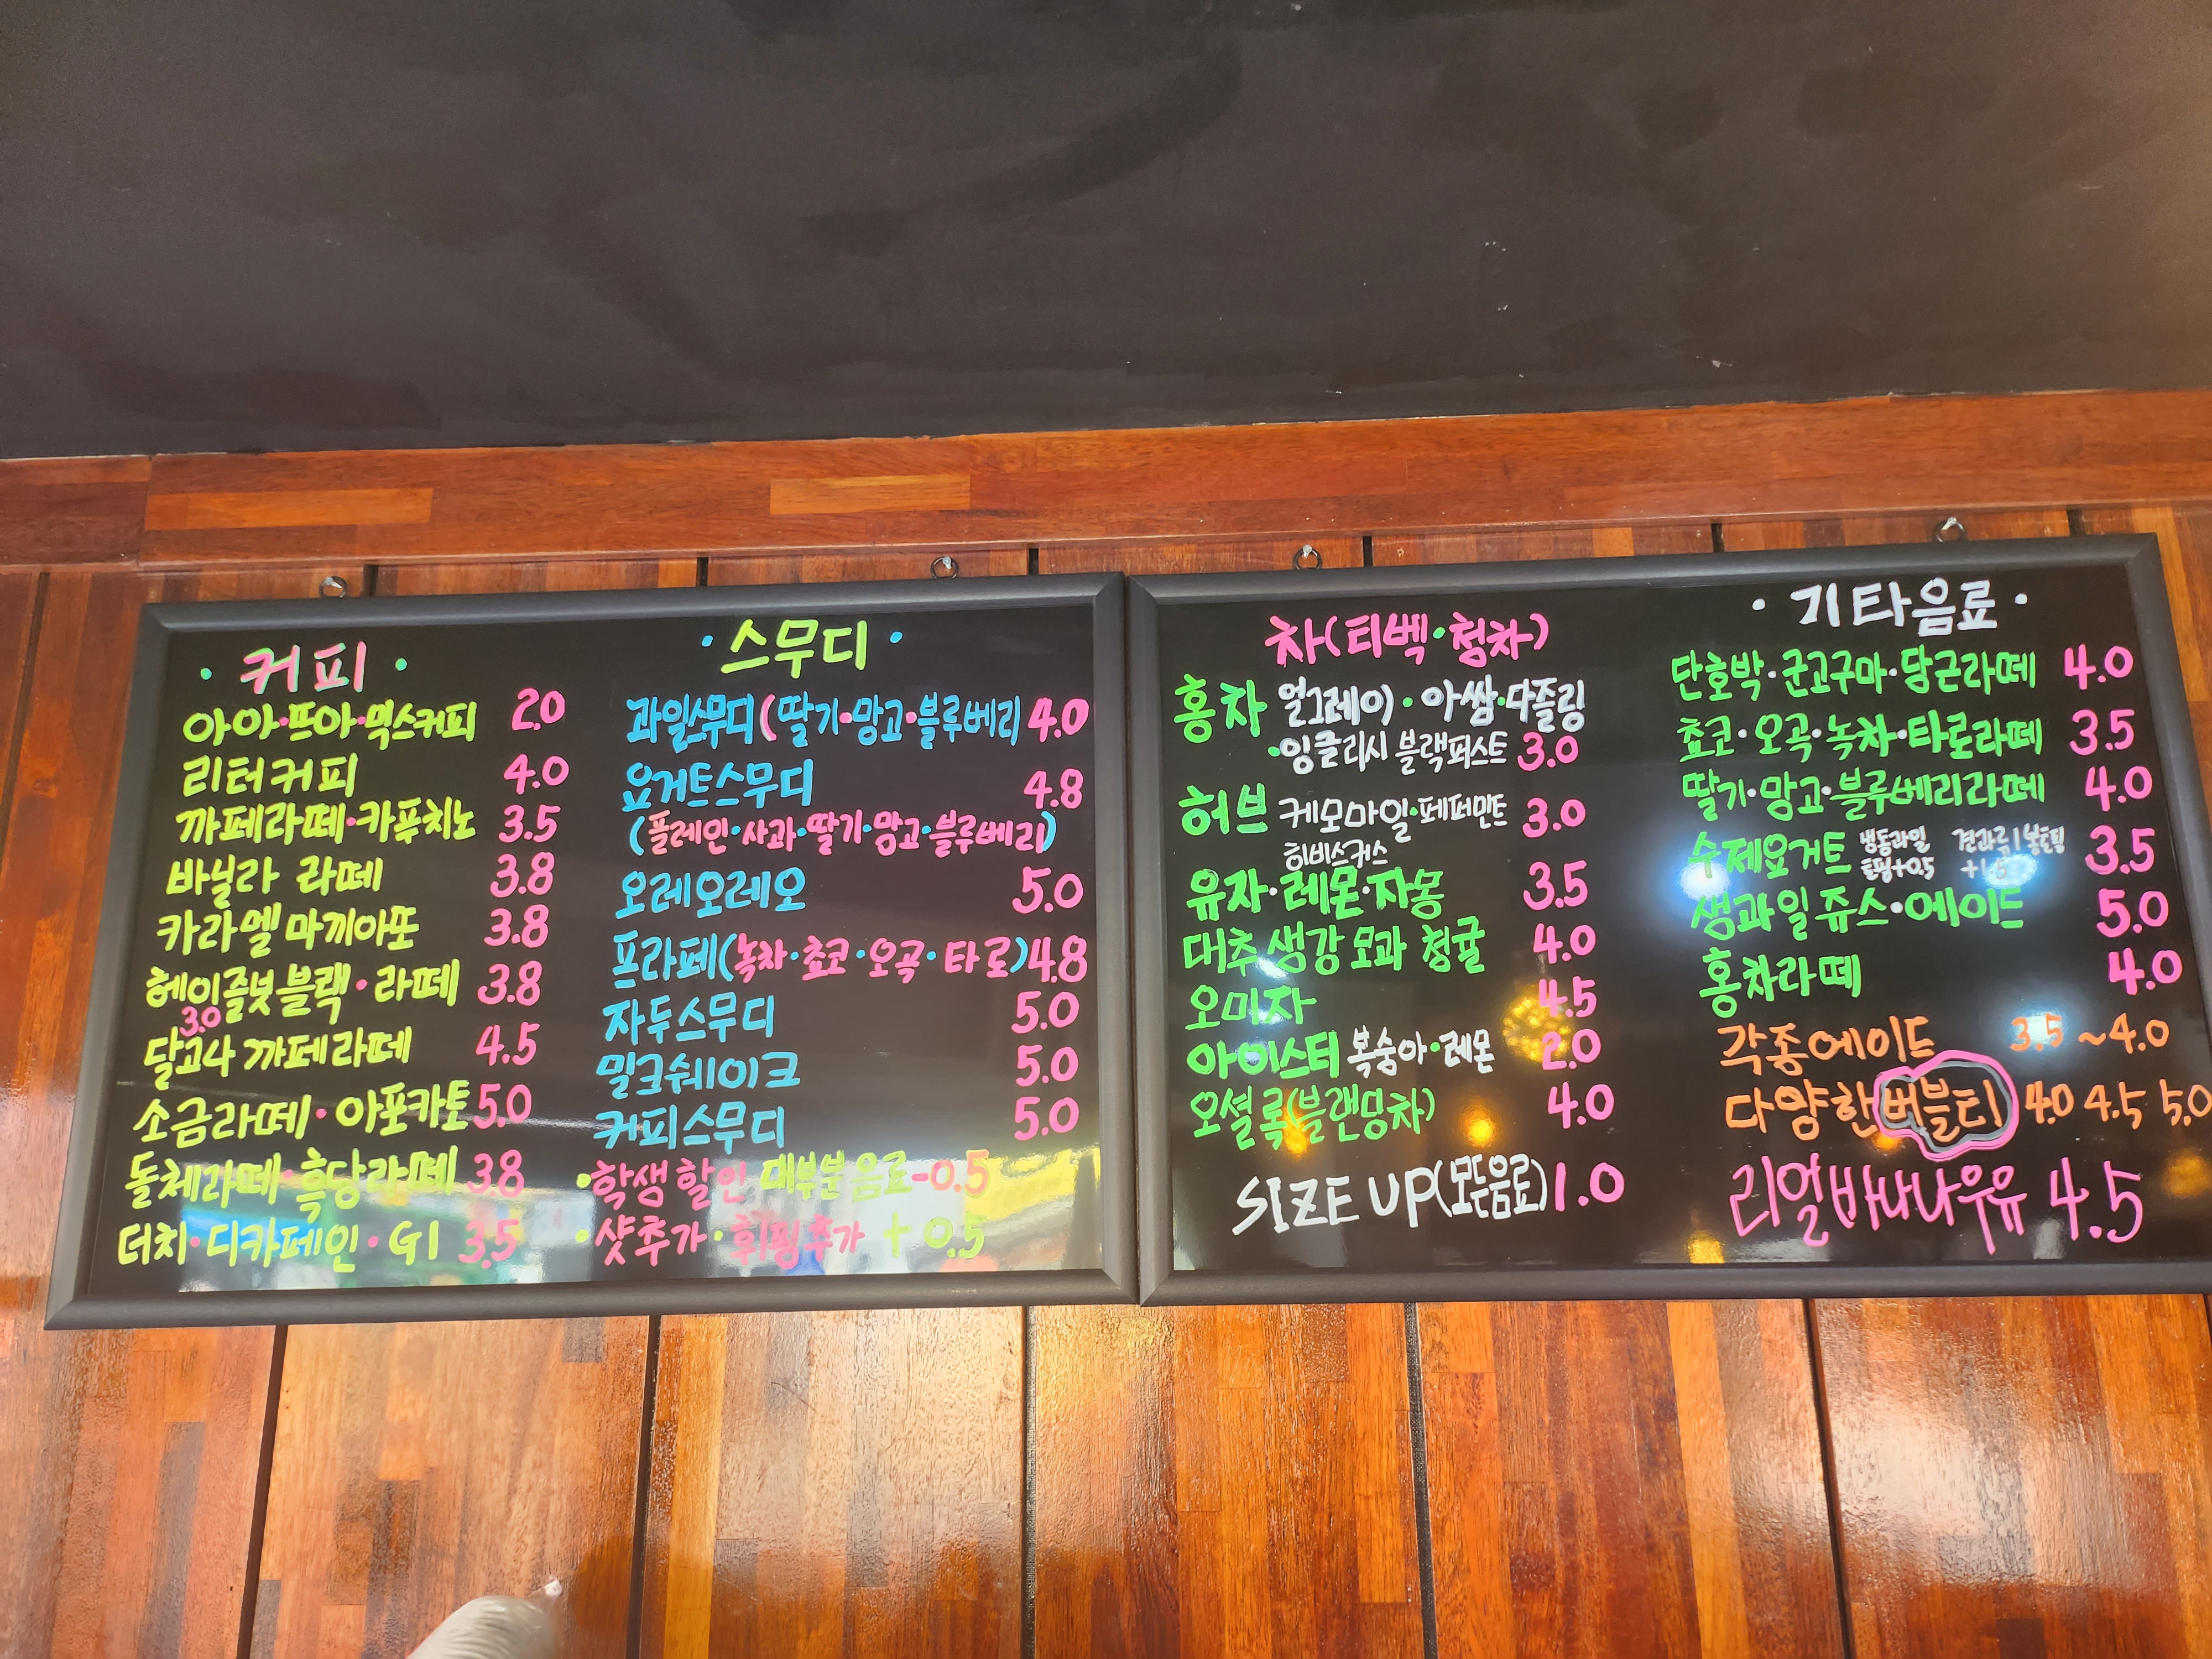 · 커피 ·
아아·뜨아·믹스커피 2.0
리터커피 4.0
까페라떼·카푸치노 3.5
바닐라 라떼 3.8
카라멜마끼아또 3.8
헤이즐넛블랙·라떼 3.8
3.0
달고나 까페라떼 4.5
소금라떼·아포카토 5.0
돌체라떼·흑당라떼 3.8
더치·디카페인·GI 3.5
· 스무디 ·
과일스무디(딸기·망고·블루베리 4.0
요거트스무디 4.8
(플레인·사과·딸기·망고·블루베리)
오레오레오 5.0
프라페(녹차·쵸코·오곡·타로) 4.8
자두스무디 5.0
밀크쉐이크 5.0
커피스무디 5.0
·학생할인 대부분음료-0.5
·샷추가·휘핑추가 + 0.5
차(티벡·청차)
홍차 얼그레이·아쌈·다즐링
·잉글리시 블랙퍼스트 3.0
허브 케모마일·페퍼민트 3.0
히비스커스
유자·레몬·자몽 3.5
대추 생강 모과 청귤 4.0
오미자 4.5
아이스티 복숭아·레몬 2.0
오설록(블랜딩차) 4.0
SIZE UP(모든음료) 1.0
· 기타음료 ·
단호박·군고구마·당근라떼 4.0
쵸코·오곡·녹차·타로라떼 3.5
딸기·망고·블루베리라떼 4.0
수제요거트 3.5
토핑+0.5
생과일쥬스·에이드 5.0
홍차라떼 4.0
각종에이드 3.5 ~4.0
다양한버블티 4.0 4.5 5.0
리얼바나나우유 4.5